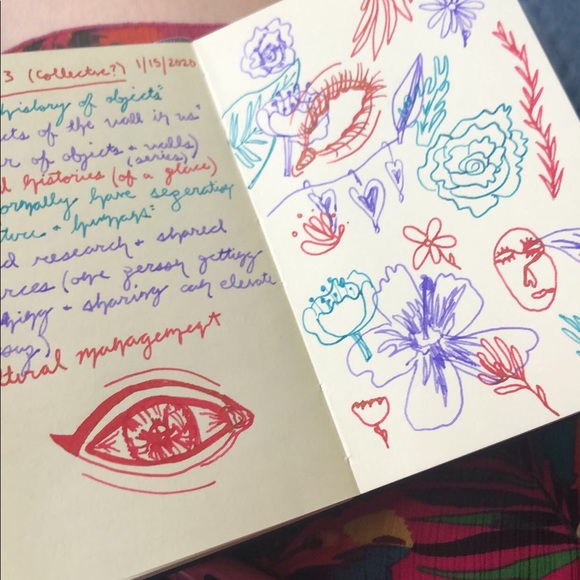 3 (Collective?) 1/15/2020
history of objects"
cts of the wall in us"
r of objects + walls)
(series)
histories (of a place)
ormally have segeration
ture + humans"
d research + shared
rces (one person getting
+ sharing can elevate
tural management